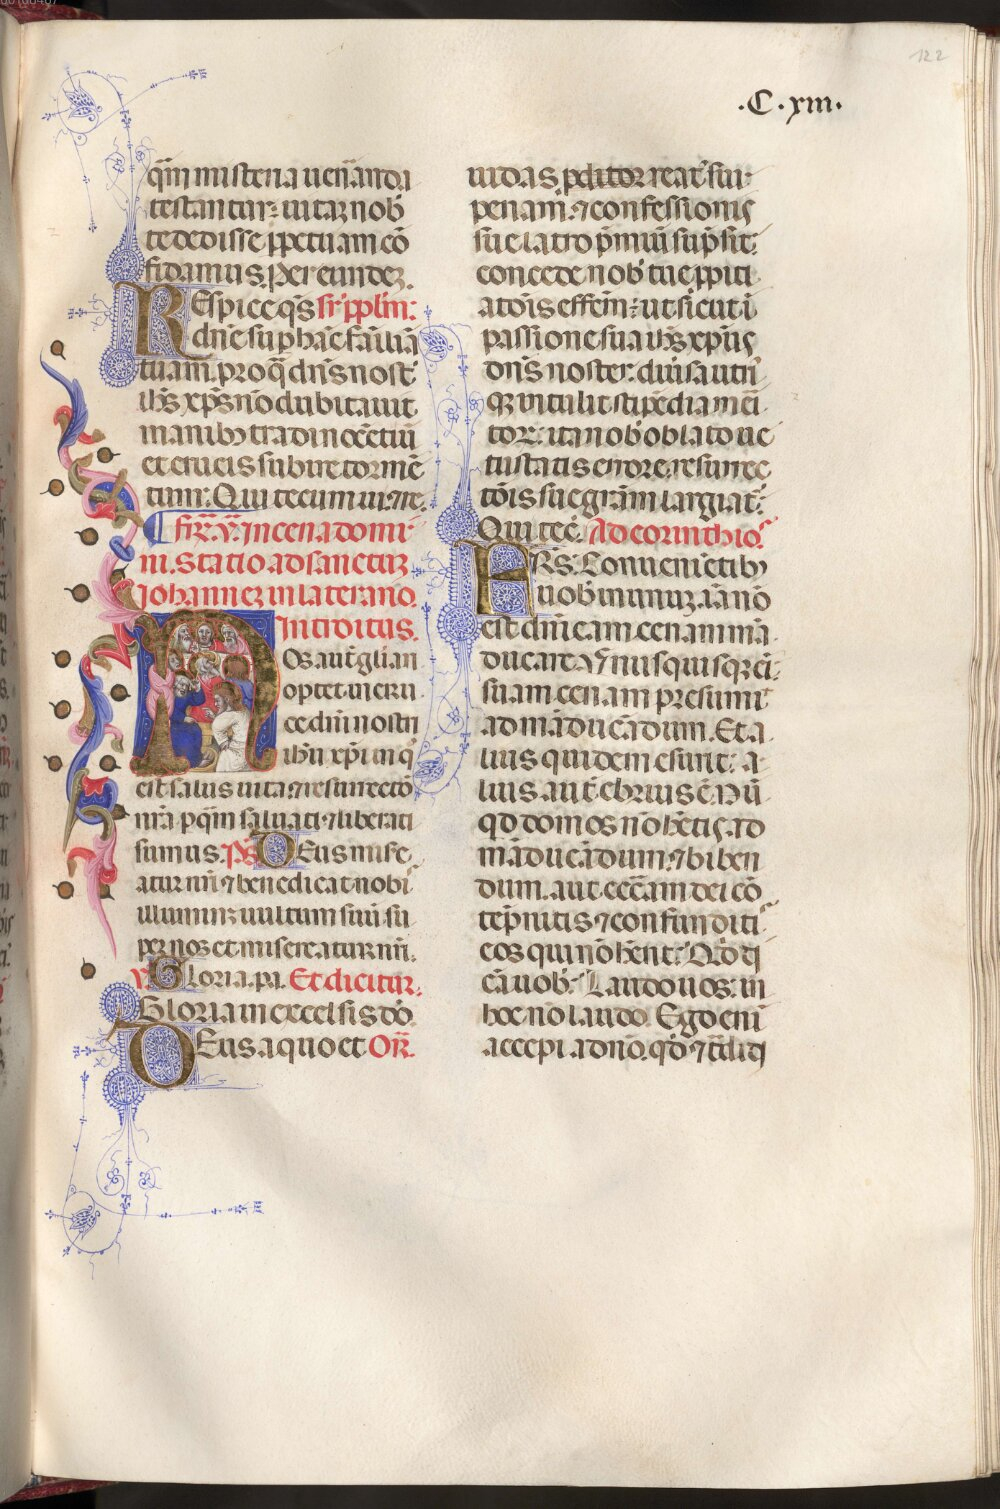 122
.C.xiii.
q̄m misteria uen̄anda
testantur: uitaz nob̄
te dedisse ꝑpetuam cō
fidamus. Per eundeꝫ.
Respice qs̄ sr̄ ppl̄m:
dn̄e suꝑ hāc familiā
tuam. pro q̄ dn̄s nost̄
ih̄s xp̄s nō dubitauit
manibꝰ tradi nocētiū
et crucis subire tormē
tum. Qui tecum uiuit ⁊ re.
fr̄. v. in cena domi
ni. Statio ad sanctuꝫ
Iohanneꝫ in laterano.
Introitus.
Nos aut̄ gl̄iari
optet in cru
ce dn̄i nostri
ih̄u xp̄i in q̄
est salus uita ⁊ resurrectō
nr̄a p quem saluati ⁊ liberati
sumus. Ps̄ Deus mise
atur nr̄i ⁊ benedicat nobi
illuminꝫ uultum suū su
per nos et misereatur nr̄i.
V. Gloria. pri. Et dicitur.
Gloria in excelsis dō.
Deus a quo et Or̄.
iudas proditor reat̄ sui
penam. ⁊ confessionis
sue latro p̄miū sūpsit:
concede nob̄ tue ꝓpiti
atōis effc̄m: ut sicut ī
passione sua ih̄s xp̄us
dn̄s noster. diuisa utri
qꝫ intulit stipēdia mēi
toꝝ: ita nob̄ oblato ue
tustatis errore. resurrec
tōis sue gr̄am largiat̄.
Qui tec̄. Ad corinthios.
Frs̄. Conuenientibꝰ
uob̄ in unuꝫ. iā nō
est dn̄icam cenam mā
ducare. Vnusquisqꝫ ēi
suam cenam presumit
ad māducādum. Et a
lius quidem esurit: a
lius aut̄ ebrius ē. Nū
qd̄ domos nō hētis ad
māducādum. ⁊ biben
dum. aut ecc̄am dei cō
tēpnitis ⁊ confunditi
eos qui nō hēnt. Quid
cā uob̄. Laudo uos. in
hoc nō laudo. Ego eni
accepi a dn̄o. qd̄ ⁊ t̄didi